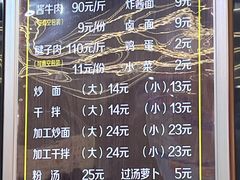 酱牛肉 90元/斤 炸酱面 9元
9元/份 卤面 9元
腱子肉 110元/斤 鸡蛋 2元
11元/份 小菜 2元
炒面 (大) 14元 (小) 13元
干拌 (大) 14元 (小) 13元
加工炒面 (大) 24元 (小) 23元
加工干拌 (大) 24元 (小) 23元
粉汤 25元 过汤萝卜 5元